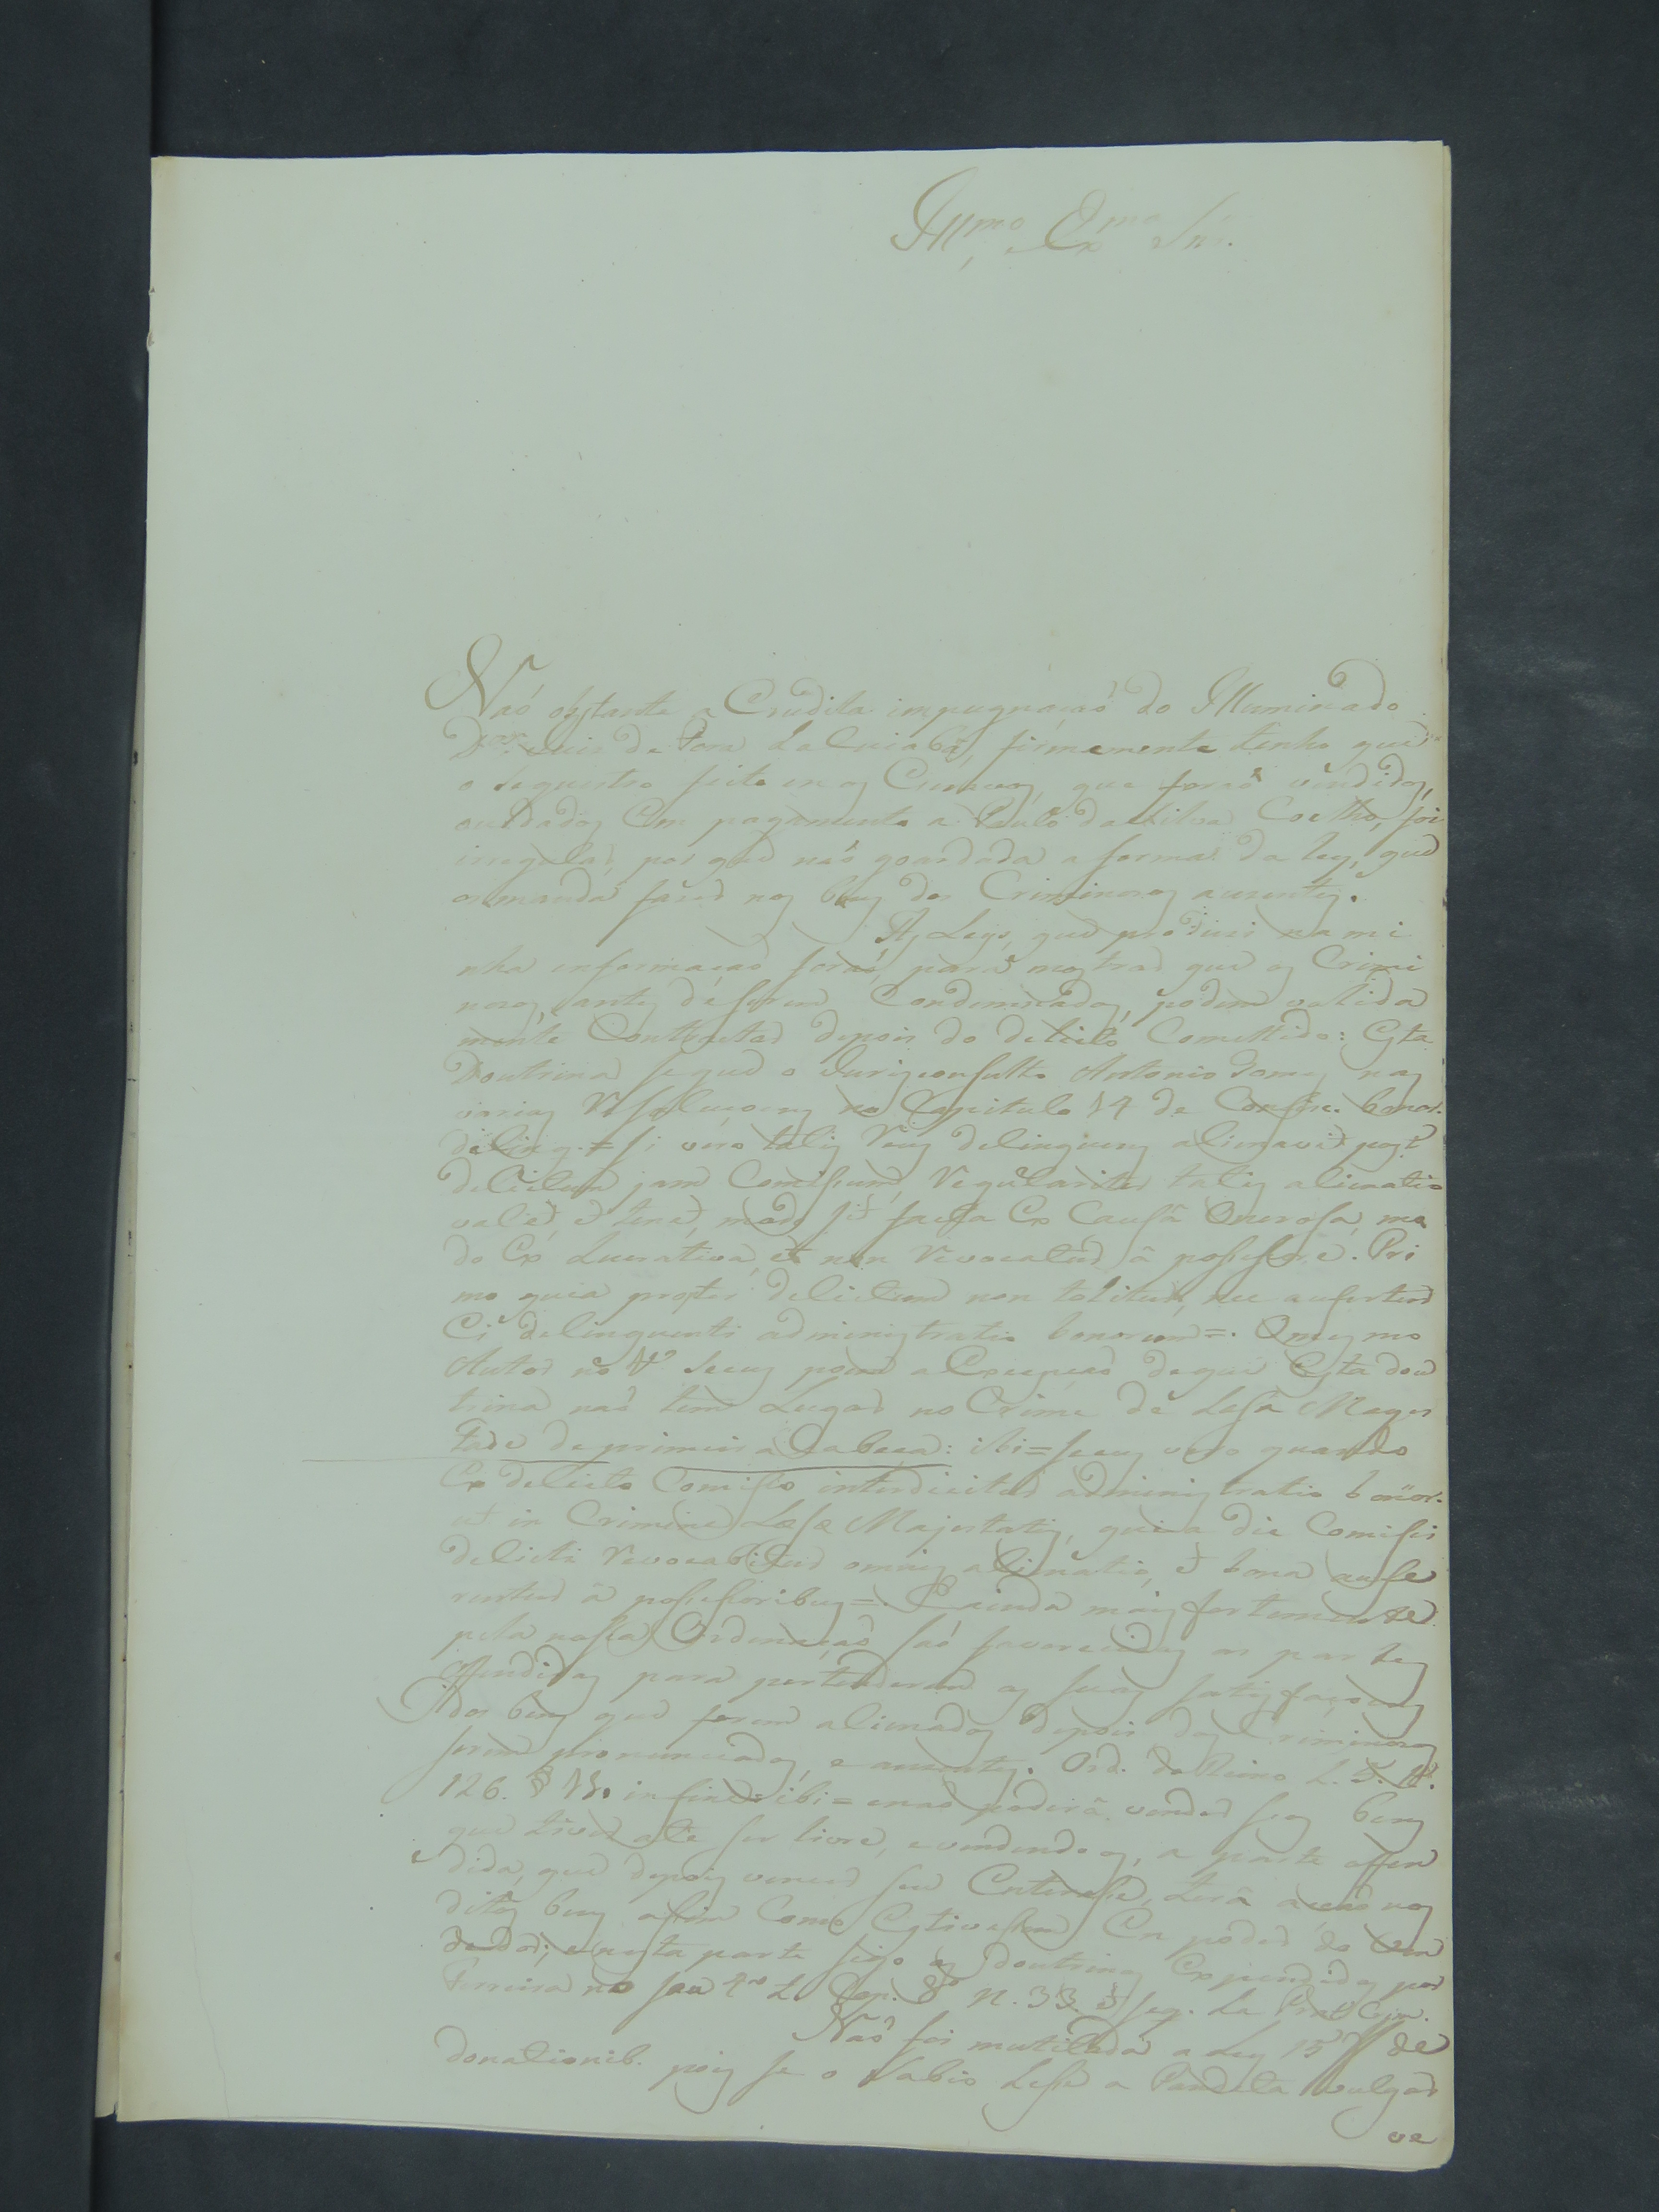 Illmo, e Exmo Snr.
Naó obstante a Erudita impugnaçaó do Illuminado
Dor. Juis de Fora do Cuiabá, firmemente tenho que
o sequestro feito em os Escravos, que foraó vendidos,
ou dados em pagamento a Paulo da Silva Coelho, foi
irregular, por que naó goardada a forma da Ley, que
os manda fazer nos bens dos Criminosos auzentes.
As Leys, que produsi na mi
nha informaçaó foraó para mostrar que os Crimi
nosos, antes de serem Condemnados, podem valida
mente Contractar depois do delicto Comettido: Esta
Doutrina segue o Jurisconsulto Antonio Gomes nas
varias Resoluçoens no Capitulo 14 de Confisc. bonor.
delinq. = Si vero talis Reus delinquens alienavit post
delictum jam Comissum, Regulariter talis alienatio
valet et tenet, modo sit facta Ex Causâ Onerosa, mo
do Ex Lucrativa, et non Revocatur â possessore. Pri
mo quia propter delictum non tollitur, nec aufertur
Ei delinquenti administratio bonorum =. O mesmo
Autor no V. Secus poem a Excepçaó de que Esta dou
trina naó tem Lugar no Crime de Lesa Mages
tade de primeira Cabeça: ibi = secus vero quando
Ex delicto Comisso interdicitur administratio bonor.
ut in Crimine Læsæ Majestatis, quia a die Comissi
delicti Revocabitur omnis alienatio, et bona aufe
runtur â possessoribus =. E ainda mais fortemente
pela nossa Ordenaçaó saó favorecidas as partes
offendidas para pertenderem as suas satisfaçoens
dos bens que forem alienados depois dos Criminosos
serem pronunciados, e auzentes. Ord. do Reino L. 5. tt.
126. § in fine: ibi = e naó poderâ vender seos bens
que tiver até ser livre, e vendendo os, a parte offen
dida, que depois vencer seu Enteresse, terá acçaó nos
ditos bens assim Como Estivessem Em poder do Ven
dedor; e nesta parte sigo as doutrinas Expendidas por
Ferreira no seu 4to L. Cap. 8º N. 33. et seq. da Prat. Crim.
Naó foi mutilada a Ley 15 ff de
donationib. pois se o Sabio Lesse a Pandeta vulgar
ve